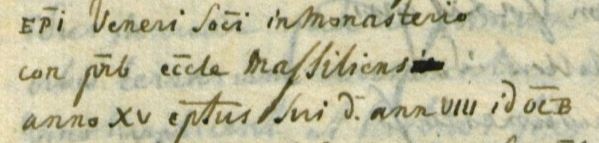 EP̅i Veneri Soc̅i in Monasterio
con pr̅b ecc̅le Massiliensi
anno XV ep̅tus Sui d̅. ann VIII id OC̅B